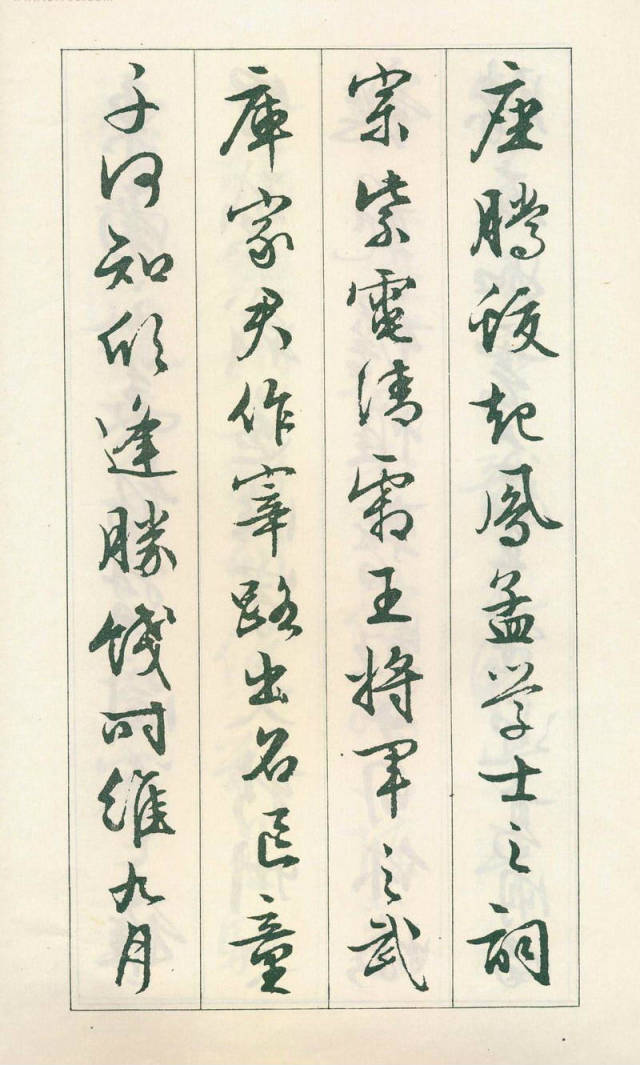 座騰蛟起鳳孟学士之詞
宗紫電清霜王将軍之武
庫家君作宰路出名區童
子何知躬逢勝餞时維九月